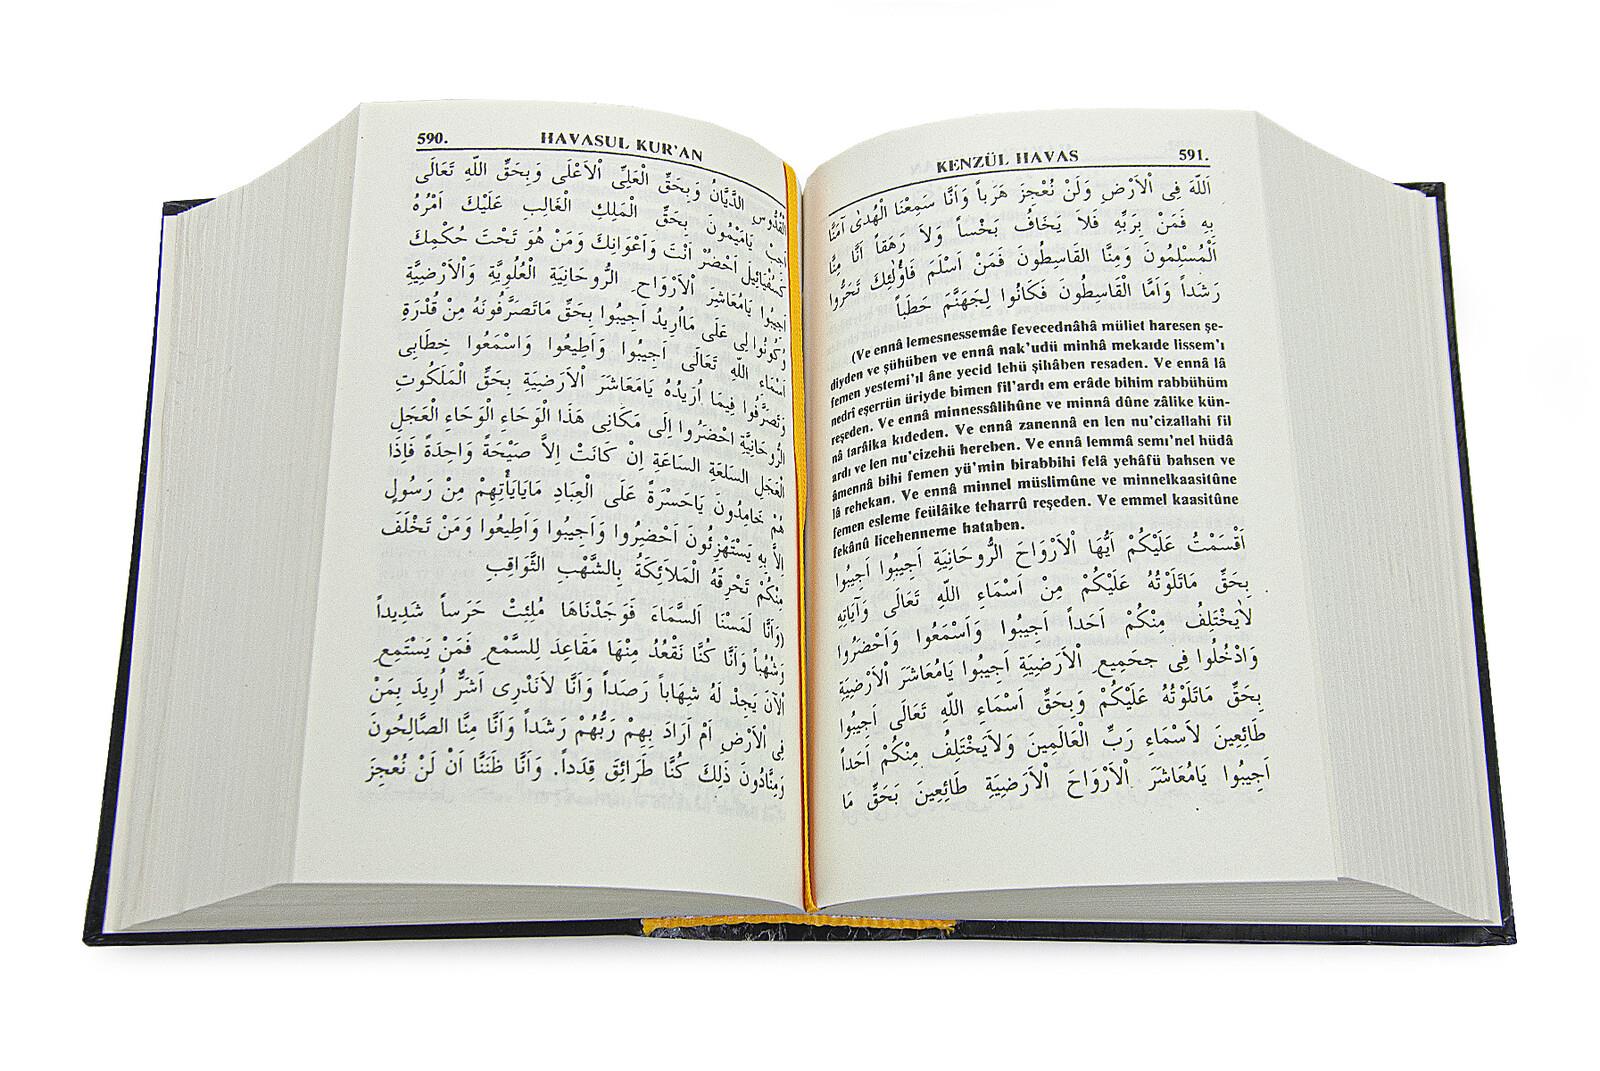 590. HAVASUL KUR'AN
الْقُدُّوسِ الدَّيَّانُ وَبِحَقِّ الْعَلِيِّ الْاَعْلَى وَبِحَقِّ اللّٰهِ تَعَالَى
اَجِبْ يَامَيْمُونَ بِحَقِّ الْمَلِكِ الْغَالِبِ عَلَيْكَ اَمْرُهُ
كَسْفَيَائِيلَ اَحْضُرْ اَنْتَ وَاَعْوَانِكَ وَمَنْ هُوَ تَحْتَ حُكْمِكَ
اَجِيبُوا يَامُعَاشِرَ الْاَرْوَاحِ الرُّوحَانِيَةِ الْعُلُوِيَّةِ وَالْاَرْضِيَّةِ
وَكُونُوا لِى عَلَى مَااُرِيدُ اَجِيبُوا بِحَقِّ مَاتَصَرَّفُونَهُ مِنْ قُدْرَةِ
اَسْمَاءِ اللّٰهِ تَعَالَى اَجِيبُوا وَاَطِيعُوا وَاسْمَعُوا خِطَابِى
وَتَصَرَّفُوا فِيمَا اُرَيدُهُ يَامَعَاشَرَ الْاَرَضِيَةِ بِحَقِّ الْمَلَكُوتِ
الرُّوحَانِيَّةِ احْضَرُوا اِلَى مَكَانِى هَذَا الْوَحَاءِ الْوَحَاءِ الْعَجَلِ
الْعَجَلِ السَلعَةِ السَاعَةِ اِنْ كَانَتْ اِلاَّ صَيْحَةً وَاحِدَةً فَاِذَا
هُمْ خَامِدُونَ يَاحَسْرَةً عَلَى الْعِبَادِ مَايَايَأْتِهِمْ مِنْ رَسُولٍ
اِلاَّ بِهِ يَسْتَهْزِئُونَ اَحْضِرُوا وَاَجِيبُوا وَاَطِيعُوا وَمَنْ تَخْلَفَ
مِنْكُمْ تَحْرِقَهُ الْمَلاَئِكَةُ بِالشَّهْبِ الثَّوَاقِبِ
(وَاَنَّا لَمَسْنَا اَلسَّمَاءَ فَوَجَدْنَاهَا مُلِئِتْ حَرَساً شَدِيداً
وَشُهُباً وَاَنَّا كُنَّا نَقْعُدُ مِنْهَا مَقَاعِدَ لِلسَّمْعِ فَمَنْ يَسْتَمِعِ
الْاَنَ يَجِدْ لَهُ شِهَاباً رَصَداً وَاَنَّا لاَنَدْرِى اَشَرٌّ اُرِيدَ بِمَنْ
فِى الْاَرْضِ اَمْ اَرَادَ بِهِمْ رَبُّهُمْ رَشَداً وَاَنَّا مِنَّا الصَّالِحُونَ
وَمِنَّادُونَ ذَلِكَ كُنَّا طَرَائِقَ قِدَداً. وَاَنَّا ظَنَنَّا اَنْ لَنْ نُعْجِزَ
KENZÜL HAVAS 591.
اَللّٰهَ فِى الْاَرْضِ وَلَنْ نُعْجِزَ هَرَباً وَاَنَّا سَمِعْنَا الْهُدٰى اٰمَنَّا
بِهِ فَمَنْ بِرَبِّهِ فَلاَ يَخَافُ بَخْساً وَلاَ رَهَقاً اَنَّا مِنَّا
الْمُسْلِمُونَ وَمِنَّا القَاسِطُونَ فَمَنْ اَسْلَمَ فَاُولٰئِكَ تَحَرُّوا
رَشَداً وَاَمَّا الْقَاسِطُونَ فَكَانُوا لِجَهَنَّمَ حَطَباً
(Ve ennâ lemesnessemâe fevecednâhâ müliet haresen şe-
diyden ve şühüben ve ennâ nak'udü minhâ mekaıde lissem'ı
femen yestemi'ıl âne yecid lehü şihâben resaden. Ve ennâ lâ
nedrî eşerrün üriyde bimen fil'ardı em erâde bihim rabbühüm
reşeden. Ve ennâ minnessâlihûne ve minnâ dûne zâlike kün-
nâ tarâika kıdeden. Ve ennâ zanennâ en len nu'cizallahi fil
ardı ve len nu'cizehü hereben. Ve ennâ lemmâ semı'nel hüdâ
âmennâ bihi femen yü'min birabbihi felâ yehâfü bahsen ve
lâ rehekan. Ve ennâ minnel müslimûne ve minnelkaasitûne
femen esleme feülâike teharrû reşeden. Ve emmel kaasitûne
fekânû licehenneme hataben.
اَقْسَمْتُ عَلَيْكُمْ اَيُّهَا الْاَرْوَاحَ الرُّوحَانِيَةِ اَجِيبُوا اَجِيبُوا
بِحَقِّ مَاتَلَوْتُهُ عَلَيْكُمْ مِنْ اَسْمَاءِ اللّٰهِ تَعَالَى وَاٰيَاتِهِ
لاَيَخْتِلِفُ مِنْكُمْ اَحَداً اَجِيبُوا وَاَسْمَعُوا وَاَحْضَرُوا
وَادْخُلُوا فِى جحَمِيعِ الْاَرَضِيَةِ اَجِيبُوا يَامُعَاشَرَ الْاَرْضِيَةِ
بِحَقِّ مَاتَلَوْتُهُ عَلَيْكُمْ وَبِحَقِّ اَسْمَاءِ اللّٰهِ تَعَالَى اَجِيبُوا
طَائِعِينَ لاَسْمَاءِ رَبِّ الْعَالَمِينَ وَلاَيَخْتِلِفُ مِنْكُمْ اَحَداً
اَجِيبُوا يَامُعَاشَرَ الْاَرْوَاحَ الْاَرَضِيَةِ طَائِعِينَ بَحَقِّ مَا